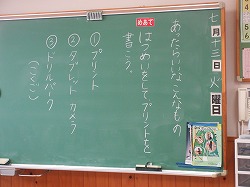 七月十三日火曜日
あったらいいなこんなもの
めあて
はつめいをしてプリントを
書こう。
①プリント
②タブレット カメラ
③ドリルパーク
(こくご)